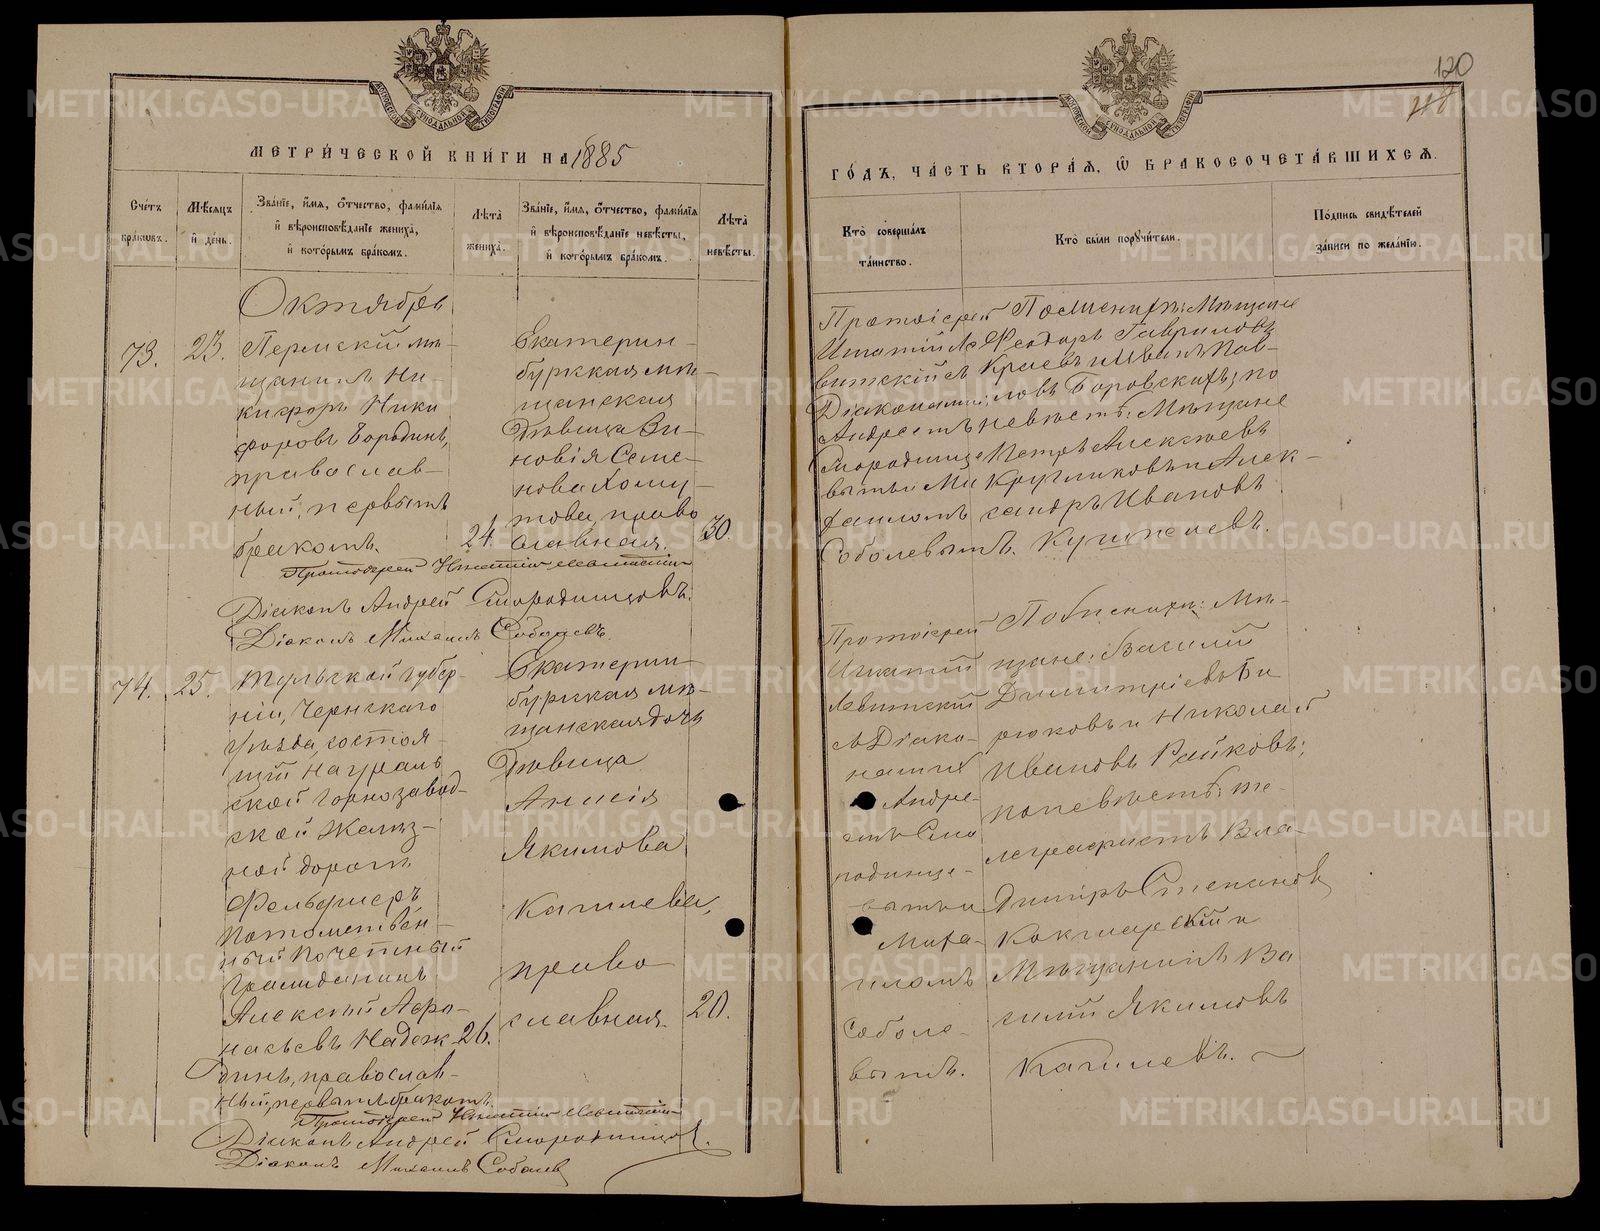 МЕТРИ́ЧЕСКОЙ КНИ́ГИ НА 1885
Сче́тъ бра́ковъ.
Мѣ́сяцъ и҆ де́нь.
Зва́нїе, и҆́мя, ѻ҆́тчество, фами́лїя и҆ вѣроисповѣ́данїе жениха̀, и҆ кото́рымъ бра́комъ.
Лѣта̀ жениха̀.
Зва́нїе, и҆́мя, ѻ҆́тчество, фами́лїя и҆ вѣроисповѣ́данїе невѣ́сты, и҆ кото́рымъ бра́комъ.
Лѣта̀ невѣ́сты.
Октябрь
73.
23.
Пермскій мѣ-
щанинъ Ни-
кифоръ Ники
форовъ Бородинъ,
православ-
ный, первымъ
бракомъ.
24.
Екатерин-
бургская мѣ-
щанская
Дѣвица Зи-
новія Семе-
нова Хому-
това, право
славная.
30.
Протоіерей Игнатій Левитскій
Діаконъ Андрей Смородинцовъ.
Діаконъ Михаилъ Соболевъ.
74.
25.
Тульской губер-
ніи, Чернскаго
уѣзда, состоя-
щій на Ураль
ской горнозавод-
ской Желѣз-
ной дорогѣ
Фельдшеръ
Потомствен-
ный Почетный
Гражданинъ
Алексѣй Афа-
насьевъ Надеж-
динъ, православ-
ный, первымъ бракомъ.
26.
Екатерин-
бургская мѣ-
щанская дочь
Дѣвица
Анисія
Якимова
Кашлева,
право
славная.
20.
Протоіерей Игнатій Левитскій
Діаконъ Андрей Смородинцов.
Діаконъ Михаилъ Соболев
120
118
ГО́ДЪ, ЧА́СТЬ ВТОРА́Я, Ѽ БРАКОСОЧЕТА́ВШИХСЯ.
Кто̀ соверша́лъ та́инство.
Кто̀ бы́ли порꙋчи́тели.
По́дпись свидѣ́телей за́писи по жела́нїю.
Протоіерей
Игнатій Ле
витскій съ
Діаконами:
Андреемъ
Смородинце
вымъ и Ми
хаиломъ
Соболевымъ.
По женихѣ: Мѣщане
Феодоръ Гавриловъ
Краевъ и Иванъ Пав-
ловъ Боровскихъ; по
невѣстѣ: Мѣщане
Петръ Алексѣевъ
Кругликовъ и Алек-
сандръ Ивановъ
Протоіерей
Игнатій
Левитскій
съ Діако-
нами
Андре-
емъ Смо
родинце-
вымъ и
Миха-
иломъ
Соболе-
вымъ.
По женихѣ: Мѣ-
щане: Василій
Димитріевъ Би
рюковъ и Николай
Ивановъ Райковъ;
по невѣстѣ: те-
леграфистъ Вла-
димiръ Степановъ
и
Мѣщанинъ Ва
силій Якимовъ
Кашлевъ.
METRIKI.GASO-URAL.RU